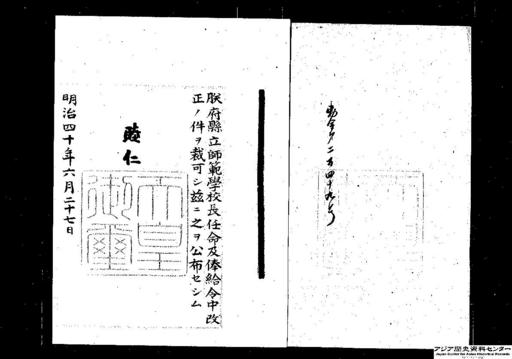 勅令第二百四十九号
朕府縣立師範學校長任命及俸給令中改
正ノ件ヲ裁可シ茲ニ之ヲ公布セシム
睦仁
天皇御璽
明治四十年六月二十七日
アジア歴史資料センター
Japan Center for Asian Historical Records